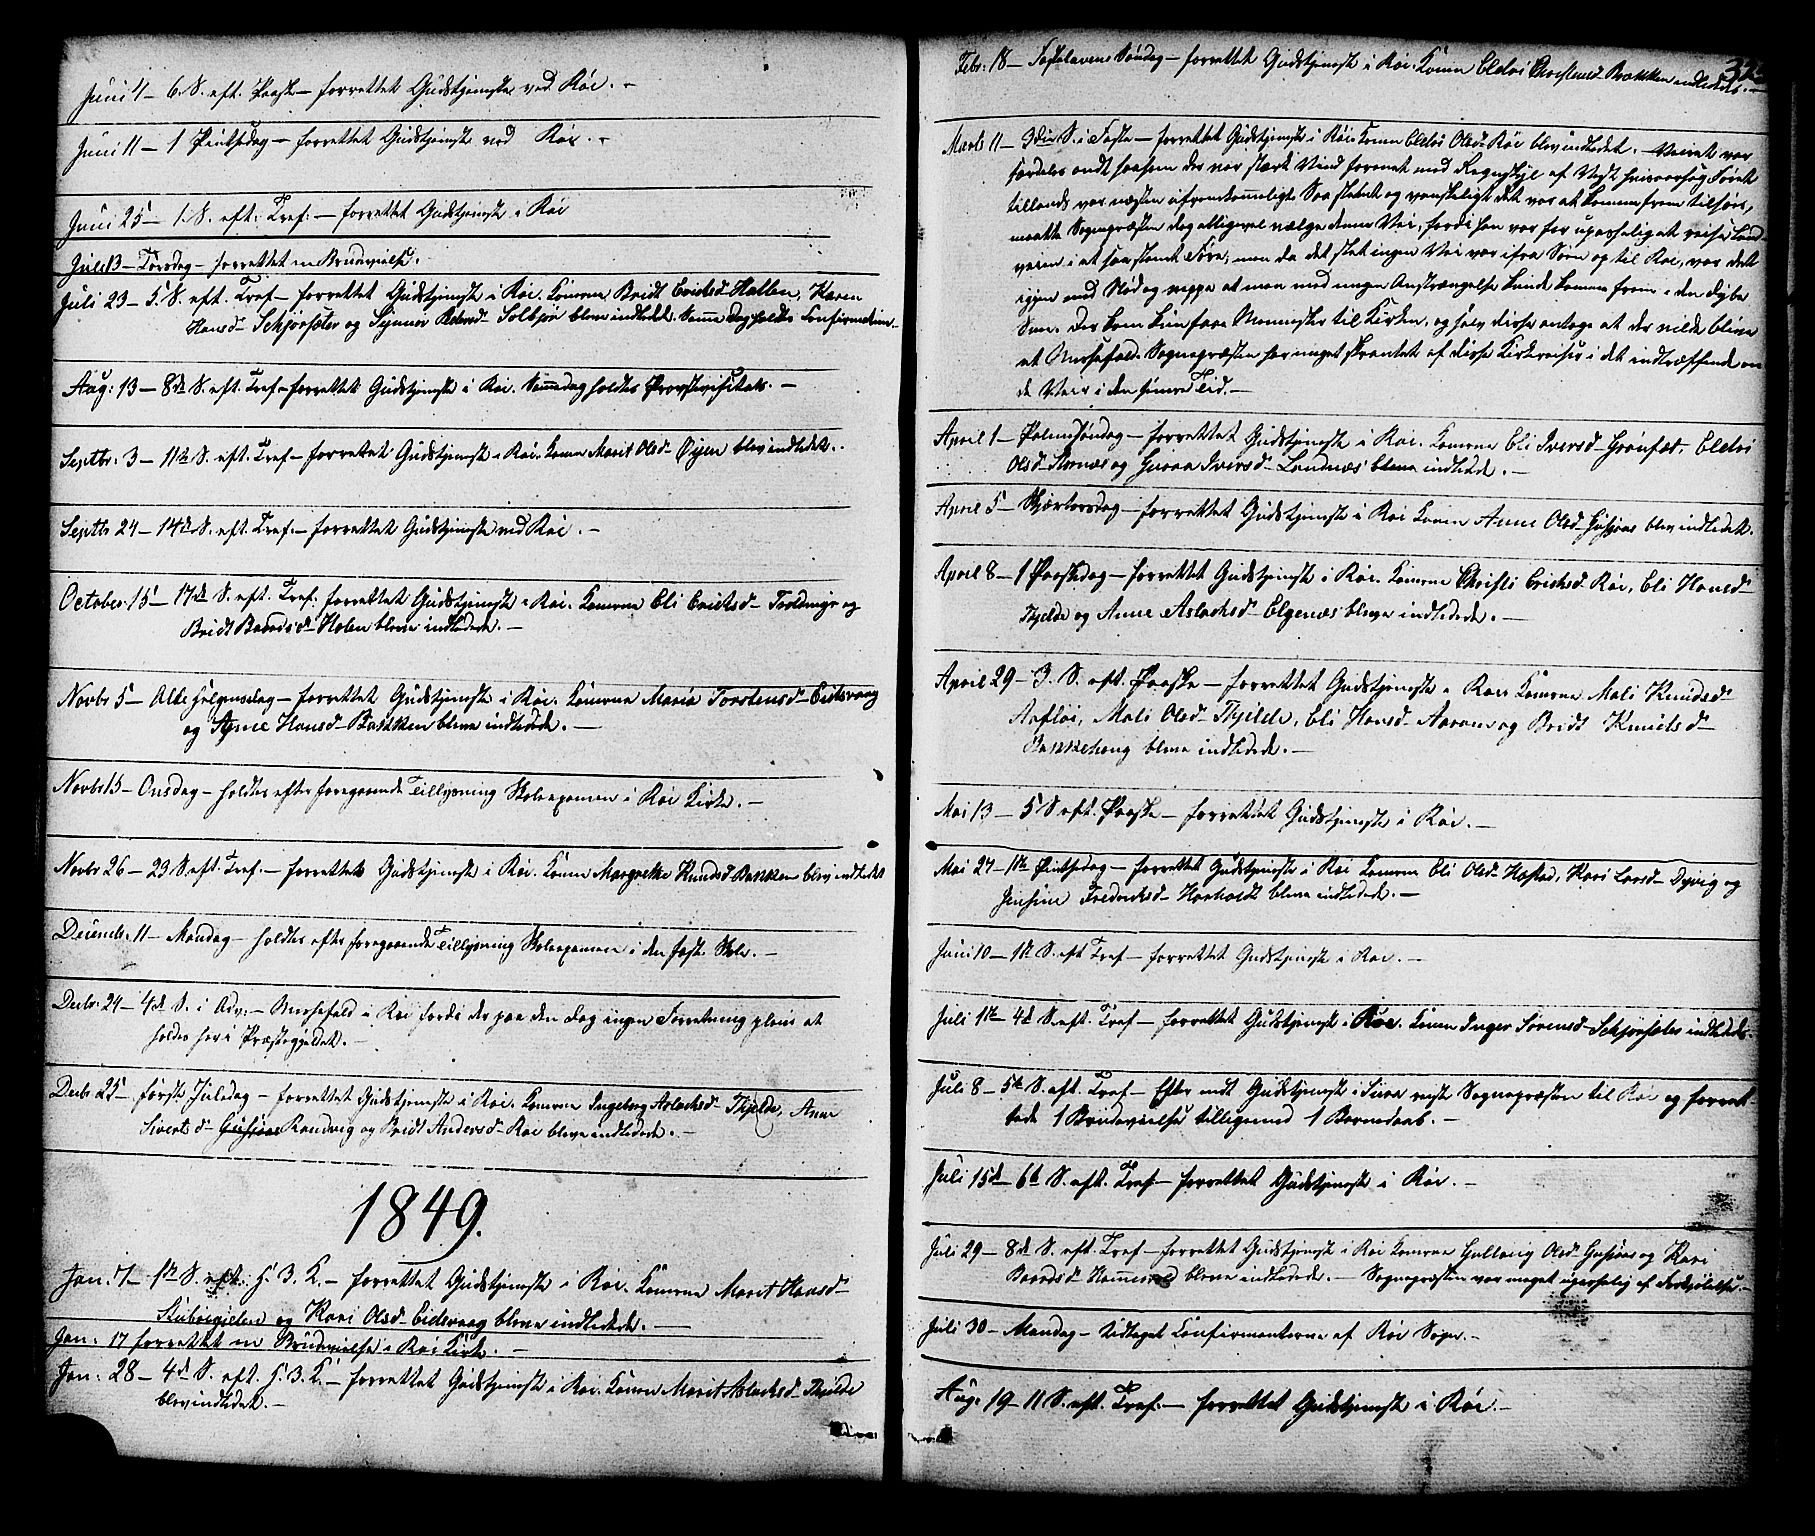 Juni 4 – 6. S. eft. Paaske – forrettet Gudstjeneste ved Röe. –
Juni 11 – 1 Pintsedag – forrettet Gudstjeneste ved Röe. –
Juni 25 – 1. S. eft: Tref: – forrettet Gudstjeneste i Röe
Juli 13 – Torsdag – forrettet en Brudevielse.
Juli 23 – 5. S. eft. Tref – forrettet Gudstjeneste i Röe. Konerne Bridt Erichsd Hallen, Karen
Hansd – Schjörsæter og Synnev Pedersd – Solbjör bleve indledede. Samme Dag holdtes Confirmation –
Aug: 13 – 8de S. eft. Tref – forrettet Gudstjeneste i Röe. Samme Dag holdtes Provstevisitats. –
Septbr: 3 – 11te S. eft. Tref – forrettet Gudstjeneste i Röe. Konen Marit Olsd – Öijen blev indledet. –
Septbr 24 – 14de S. eft. Tref. – forrettet Gudstjeneste ved Röe. –
October 15 – 17de S. eft. Tref. forrettet Gudstjeneste i Röe. Konerne Eli Erichsd – Torldmyr og
Bridt Baardsd – Holen bleve indledede. –
Novbr 5 – Alle Helgensdag – forrettet Gudstjeneste i Röe. Konerne Maria Torstensd – Eidsvaag
og Anne Hansd – Backken bleve indledede. –
Novbr 15 – Onsdag – holdtes efter foregaaende Tillysning Skoleexamen i Röe Kirke. –
Novbr 26 – 23 S. eft. Tref. – forrettet Gudstjeneste i Röe. Konen Margrethe Knudsd Backken blev indledet
Decembr. 11 – Mandag – holdtes efter foregaaende Tillysning Skoleexamen i den faste Skole. –
Decbr. 24 – 4de S. i Adv: – Messefald i Röe fordi der paa den Dag ingen Forretning pleier at
holdes her i Præstegjeldet. –
Decbr 25 – förste Juledag – forrettet Gudstjeneste i Röe. Konerne Ingeborg Aslachsd – Thjelde, Anne
Sivertsd – Randvig og Bridt Andersd – Röe bleve indledede. –
1849.
Jan: 7 – 1ste S. eft. H. 3. K. – forrettet Gudstjeneste i Röe. Konerne Marit Hansd –
og Kari Olsd – Eidsvaag bleve indledede. –
Jan: 17 forrettet en Brudevielse i Röe Kirke. –
Jan: 28 – 4de S. eft. H. 3. K. – forrettet Gudstjeneste i Röe. Konen Marit Aslachsd – Thjelde
blev indledet. –
32
Febr: 18 – Fastelavens Söndag – forrettet Gudstjeneste i Röe. Konen Eldri Christensd Backken indledet. –
Marts 11 – 3die S. i Faste – forrettet Gudstjeneste i Röe. Konen Eldri Olsd – Röe blev indledet. – Veiret var
særdeles ondt saasom der var stærk Vind forenet med Regnskyl af Vest hvisaarsag Föret
tillands var næsten ufremkommeligt. Saa slemt og vanskeligt det var at komme frem tilsöes,
maatte Sognepræsten dog alligevel vælge denne Vei, fordi han var for upasselig at reise Land-
veien i et saa slemt Före; men da det slet ingen Vei var ifra Söen op til Röe, var det
igjen med Nöd og neppe at man med megen Anstrængelse kunde komme frem i den dybe
Snee. Der kom kun faae Mennesker til Kirken, og selv disse antoge at der vilde blive
et Messefald. Sognepræsten har meget skrantet af disse Kirkereiser i det indtræffende on
de Veir i den senere Tid. –
April 1 – Palmesöndag – forrettet Gudstjeneste i Röe. Konerne Eli Iversd – Grönset, Eldri
Olsd – og Guroe Iversd – Landnæs bleve indledede. –
April 5 – Skjærtorsdag – forrettet Gudstjeneste i Röe. Konen Anne Olsd – Husjöas blev indledet.
April 8 – 1 Paaskedag – forrettet Gudstjeneste i Röe. Konerne Christi Erichsd – Röe, Eli Hansd –
Thjelde og Anne Aslachsd – Elgenæs bleve indledede. –
April 29 – 3. S. eft. Paaske – forrettet Gudstjeneste i Röe. Konerne Mali Knudsd –
Aafloi, Mali Olsd – Thjelde, Eli Hansd – Aaram og Bridt Knudsd –
Backkehoug bleve indledede. –
Mai 13 – 5 S. eft. Paaske – forrettet Gudstjeneste i Röe. –
Mai 27 – 1ste Pintsedag – forrettet Gudstjeneste i Röe. Konerne Eli Olsd – Hæstad, Kari Larsd – Dyvig og
Jensine Fredrichsd – bleve indledede. –
Juni 10 – 1ste S. eft Tref – forrettet Gudstjeneste i Röe. –
Juli 1ste – 4de S. eft. Tref – forrettet Gudstjeneste i Röe. Konen Inger Sörensd – Schjörsæter indledet. –
Juli 8 – 5te S. eft. Tref – Efter endt Gudstjeneste i Sira reiste Sognepræsten til Röe og forret-
tede 1 Brudevielse tilligemed 1 Barnedaab. –
Juli 15de – 6te S. eft. Tref – forrettet Gudstjeneste i Röe. –
Juli 29 – 8de S. eft. Tref – forrettet Gudstjeneste i Röe. Konerne Gullovig Olsd – Husjöas og Kari
Baardsd – bleve indledede. – Sognepræsten var meget upasselig af Forkjölelse. –
Juli 30 – Mandag – Udtaget Confirmanterne af Röe Sogn. –
Aug: 19 – 11 S. eft. Tref: – forrettet Gudstjeneste i Röe. –